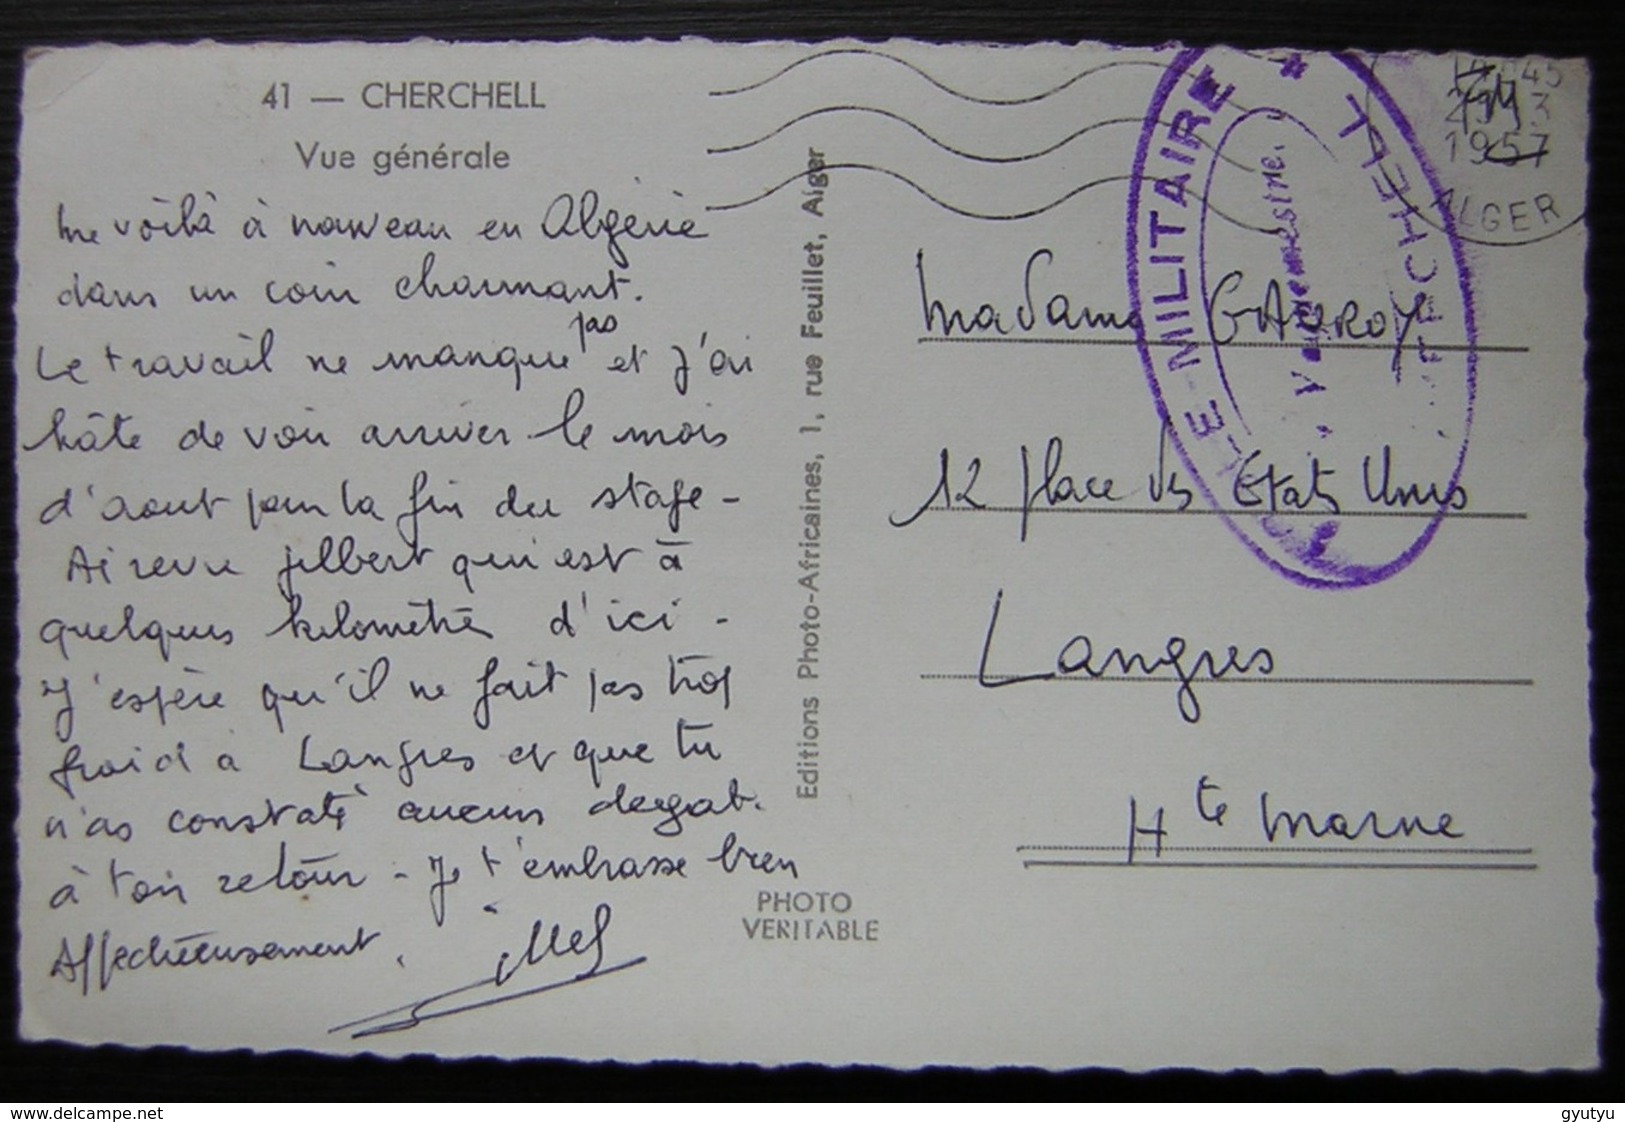 41 — CHERCHELL
Vue générale
Me voilà à nouveau en Algérie
dans un coin charmant.
Le travail ne manque pas et j'ai
hâte de voir arriver le mois
d'aout pour la fin du stage -
Ai revu Gilbert qui est à
quelques kilomètres d'ici -
J'espère qu'il ne fait pas trop
froid à Langres et que tu
n'as constaté aucun degat
à ton retour - Je t'embrasse bien
Affectueusement.
PHOTO
VERITABLE
Editions Photo-Africaines, 1, rue Feuillet, Alger
MILITAIRE * CHERCHELL
Vaguemestre
1957
ALGER
Madame GAUROY
12 place des Etats Unis
Langres
Hte Marne
www.delcampe.net
gyutyu